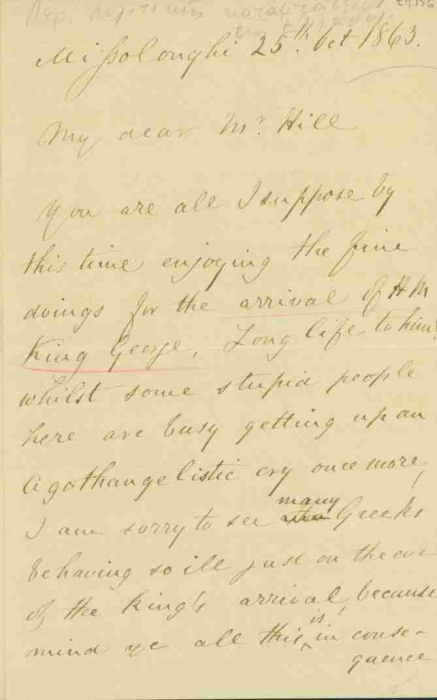 Missolonghi 25th. Oct 1863.
My dear Mr. Hill
You are all I suppose by
this time enjoying the fine
doings for the arrival of H M
King George. Long life to him!
whilst some stupid people
here are busy getting up an
Agathangelistic cry once more,
I am sorry to see many Greeks
behaving so ill just on the eve
of the King's arrival, because
mind ye all this, is, in conse-
quence